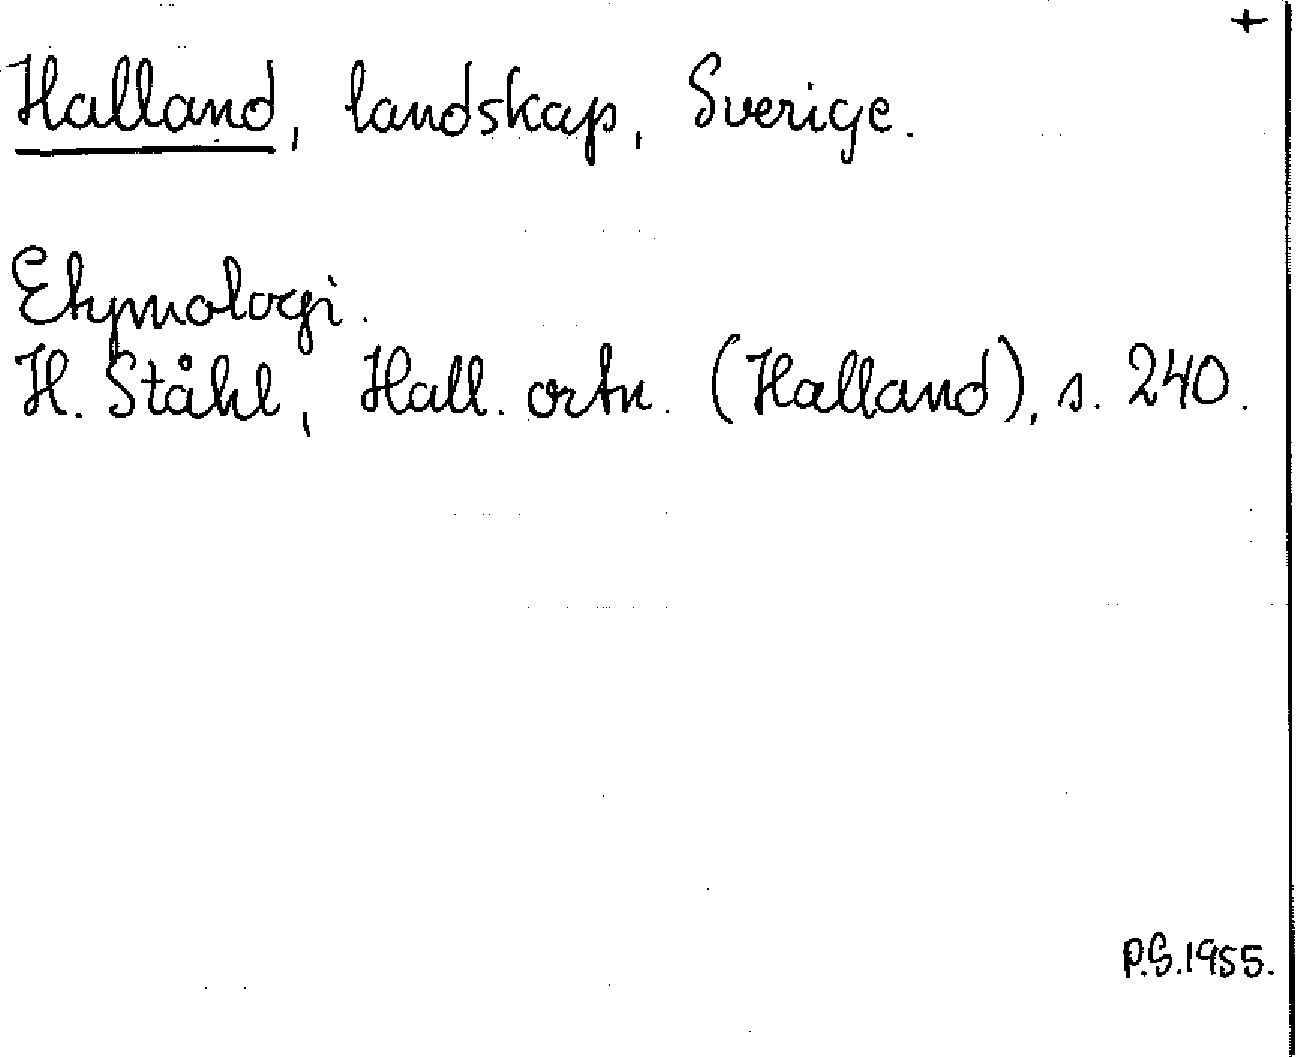 +
Halland, landskap, Sverige.
Etymologi.
H. Ståhl, Hall. ortn. (Halland), s. 240.
P.S. 1955.